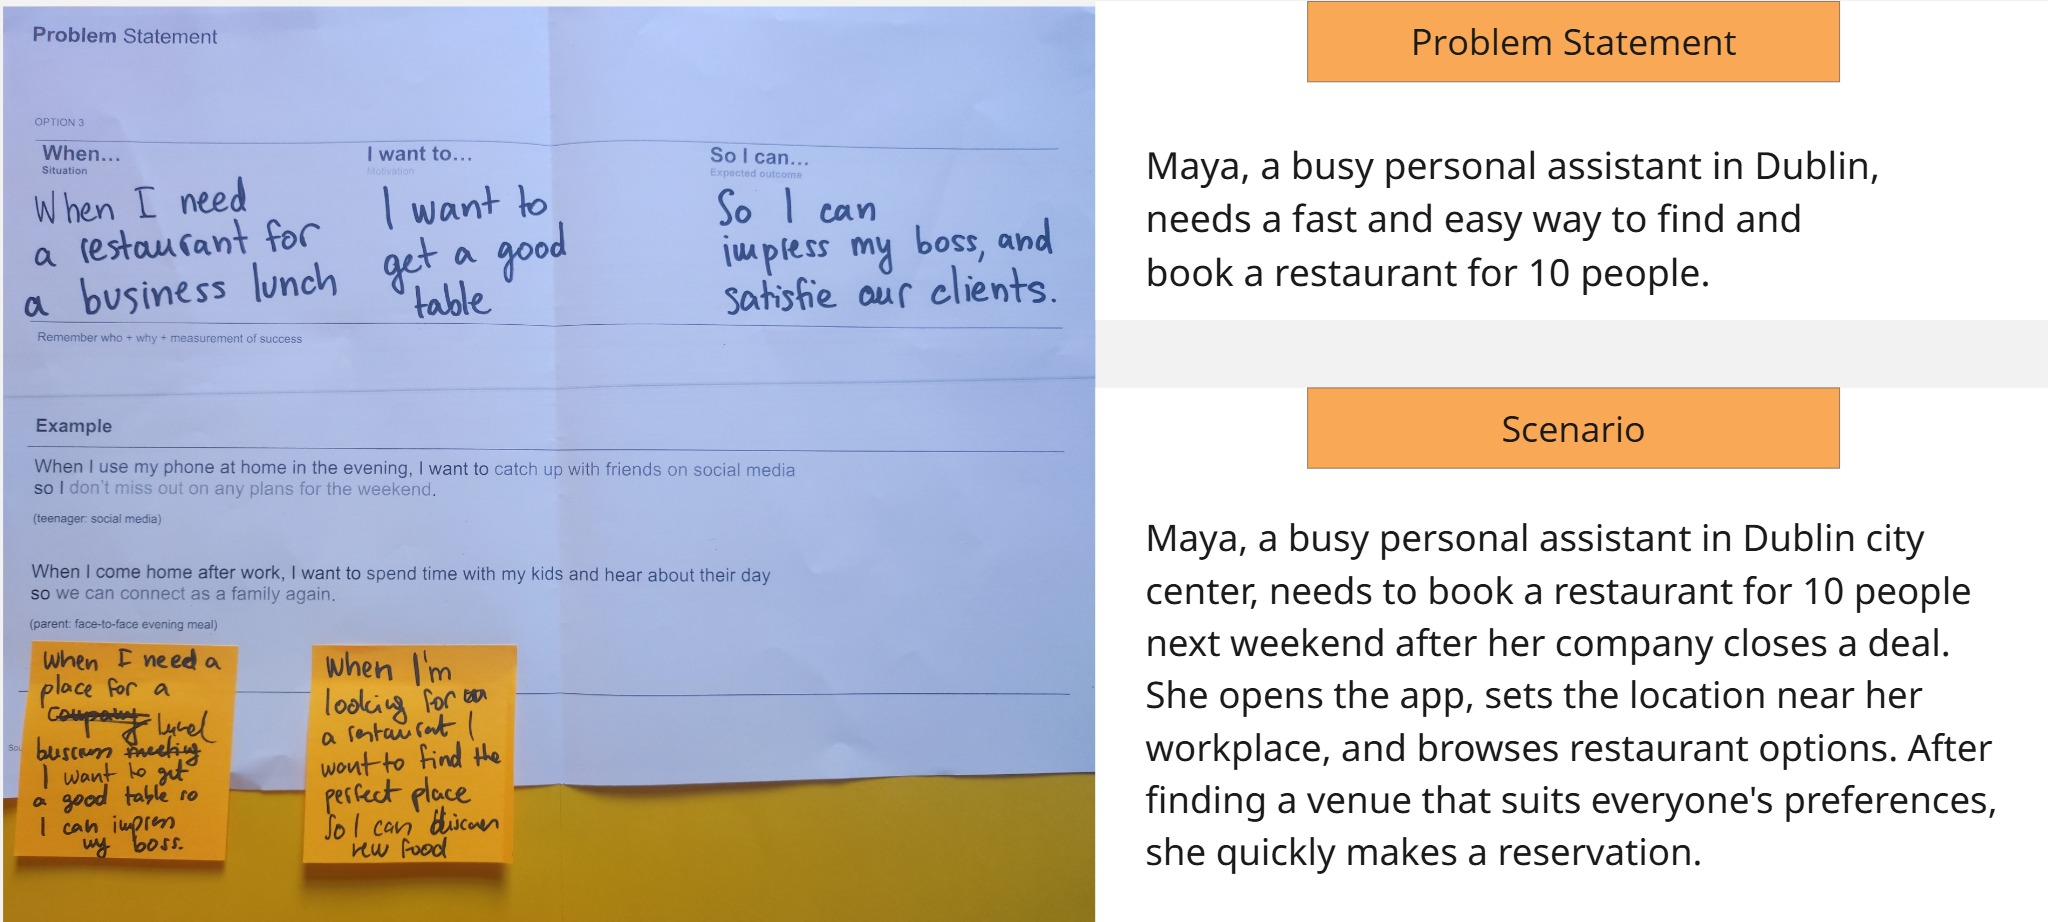 Problem Statement
OPTION 3
When...
Situation
When I need
a restaurant for
a business lunch
I want to...
Motivation
I want to
get a good
table
So I can...
Expected outcome
So I can
impress my boss, and
satisfie our clients.
Remember who + why + measurement of success
Example
When I use my phone at home in the evening, I want to catch up with friends on social media
so I don't miss out on any plans for the weekend.
(teenager: social media)
When I come home after work, I want to spend time with my kids and hear about their day
so we can connect as a family again.
(parent: face-to-face evening meal)
When I need a
place for a
company
meeting
I want to get
a good table so
I can impress
my boss.
When I'm
looking for
a restaurant I
want to find the
perfect place
So I can discover
new food
Problem Statement
Maya, a busy personal assistant in Dublin,
needs a fast and easy way to find and
book a restaurant for 10 people.
Scenario
Maya, a busy personal assistant in Dublin city
center, needs to book a restaurant for 10 people
next weekend after her company closes a deal.
She opens the app, sets the location near her
workplace, and browses restaurant options. After
finding a venue that suits everyone's preferences,
she quickly makes a reservation.